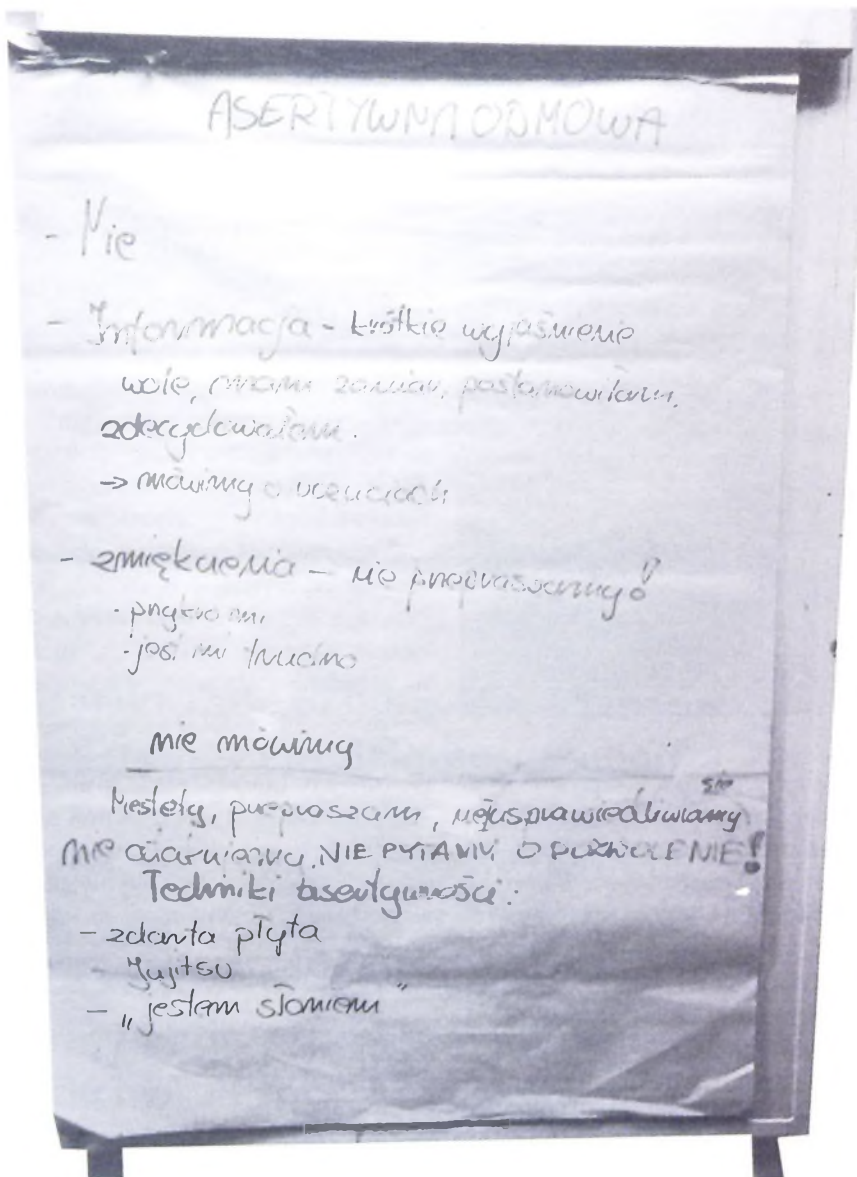 ASERTYWNA ODMOWA
- Nie
- Informacja - krótkie wyjaśnienie
wolę, mam zamiar, postanowiłam,
zdecydowałam.
→ mówimy o uczuciach
- zmiękczenia - nie przepraszamy!
- przykro mi
- jest mi trudno
nie mówimy
Niestety, przepraszam, nie usprawiedliwiamy się
nie NIE PYTAMY O POZWOLENIE!
Techniki asertywności:
- zdarta płyta
- Jujitsu
- „jestem słoniem”